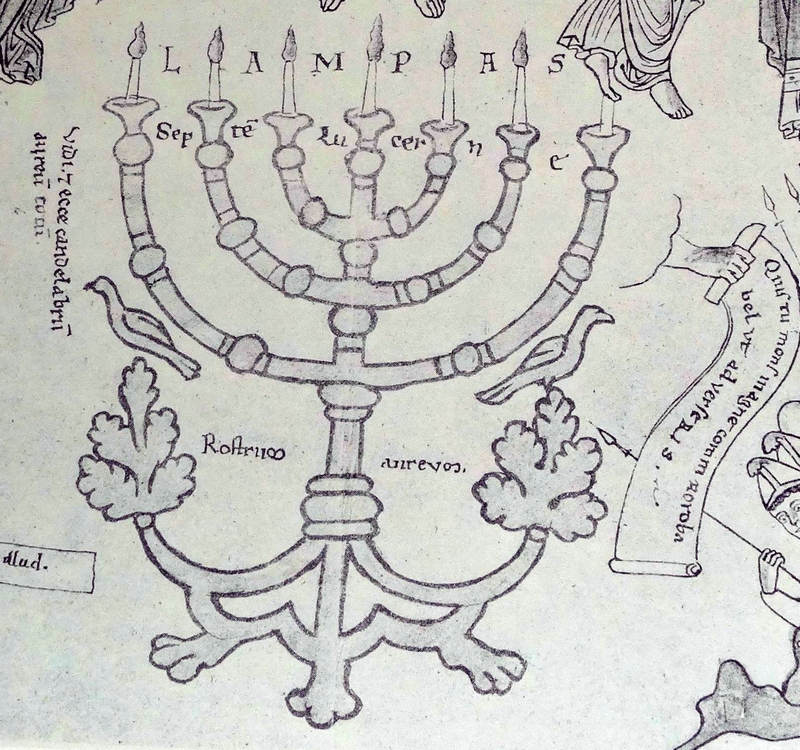 L A M P A S
Sep tē Lu cer n ē
Vidi. ⁊ ecce candelabrū
aureū
Rostrum
aureuos.
Quis tu mons magne zoroba
bel
illud.